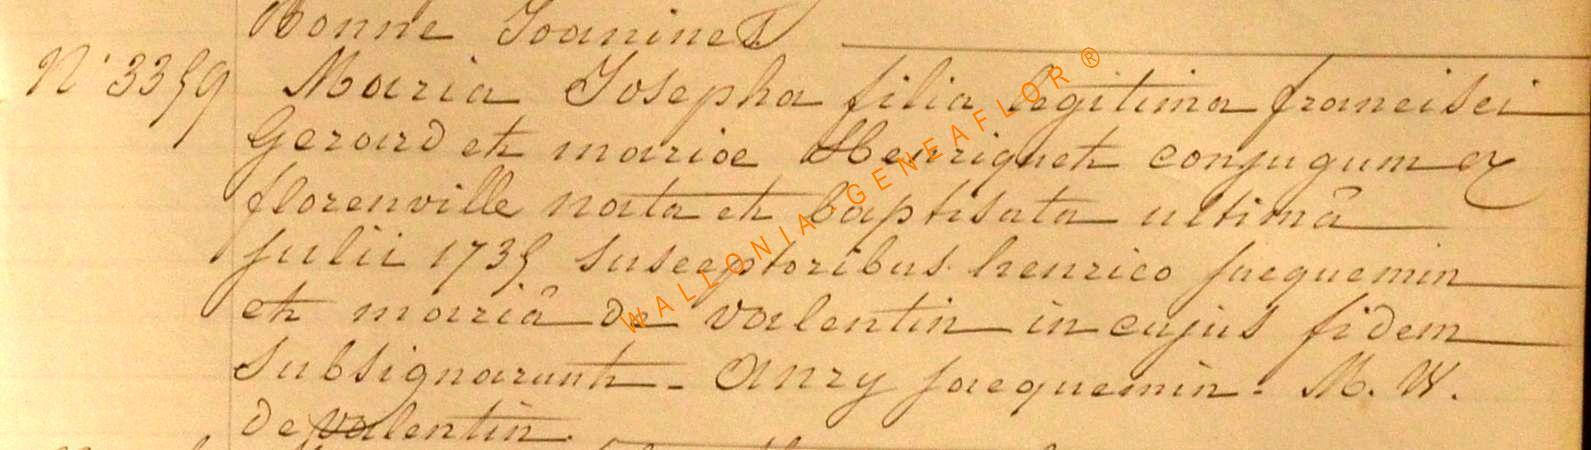 Bonne Joanines.
N° 3359 Maria Josepha filia legitima francisci
Gerard et mariae Henriquet conjugum ex
florenville nata et baptisata ultimâ
julii 1735 susceptoribus henrico jacquemin
et mariâ de valentin in cujus fidem
subsignarunt - Anry jacquemin - M. W.
de valentin.
WALLONIA-GENEAFLOR®